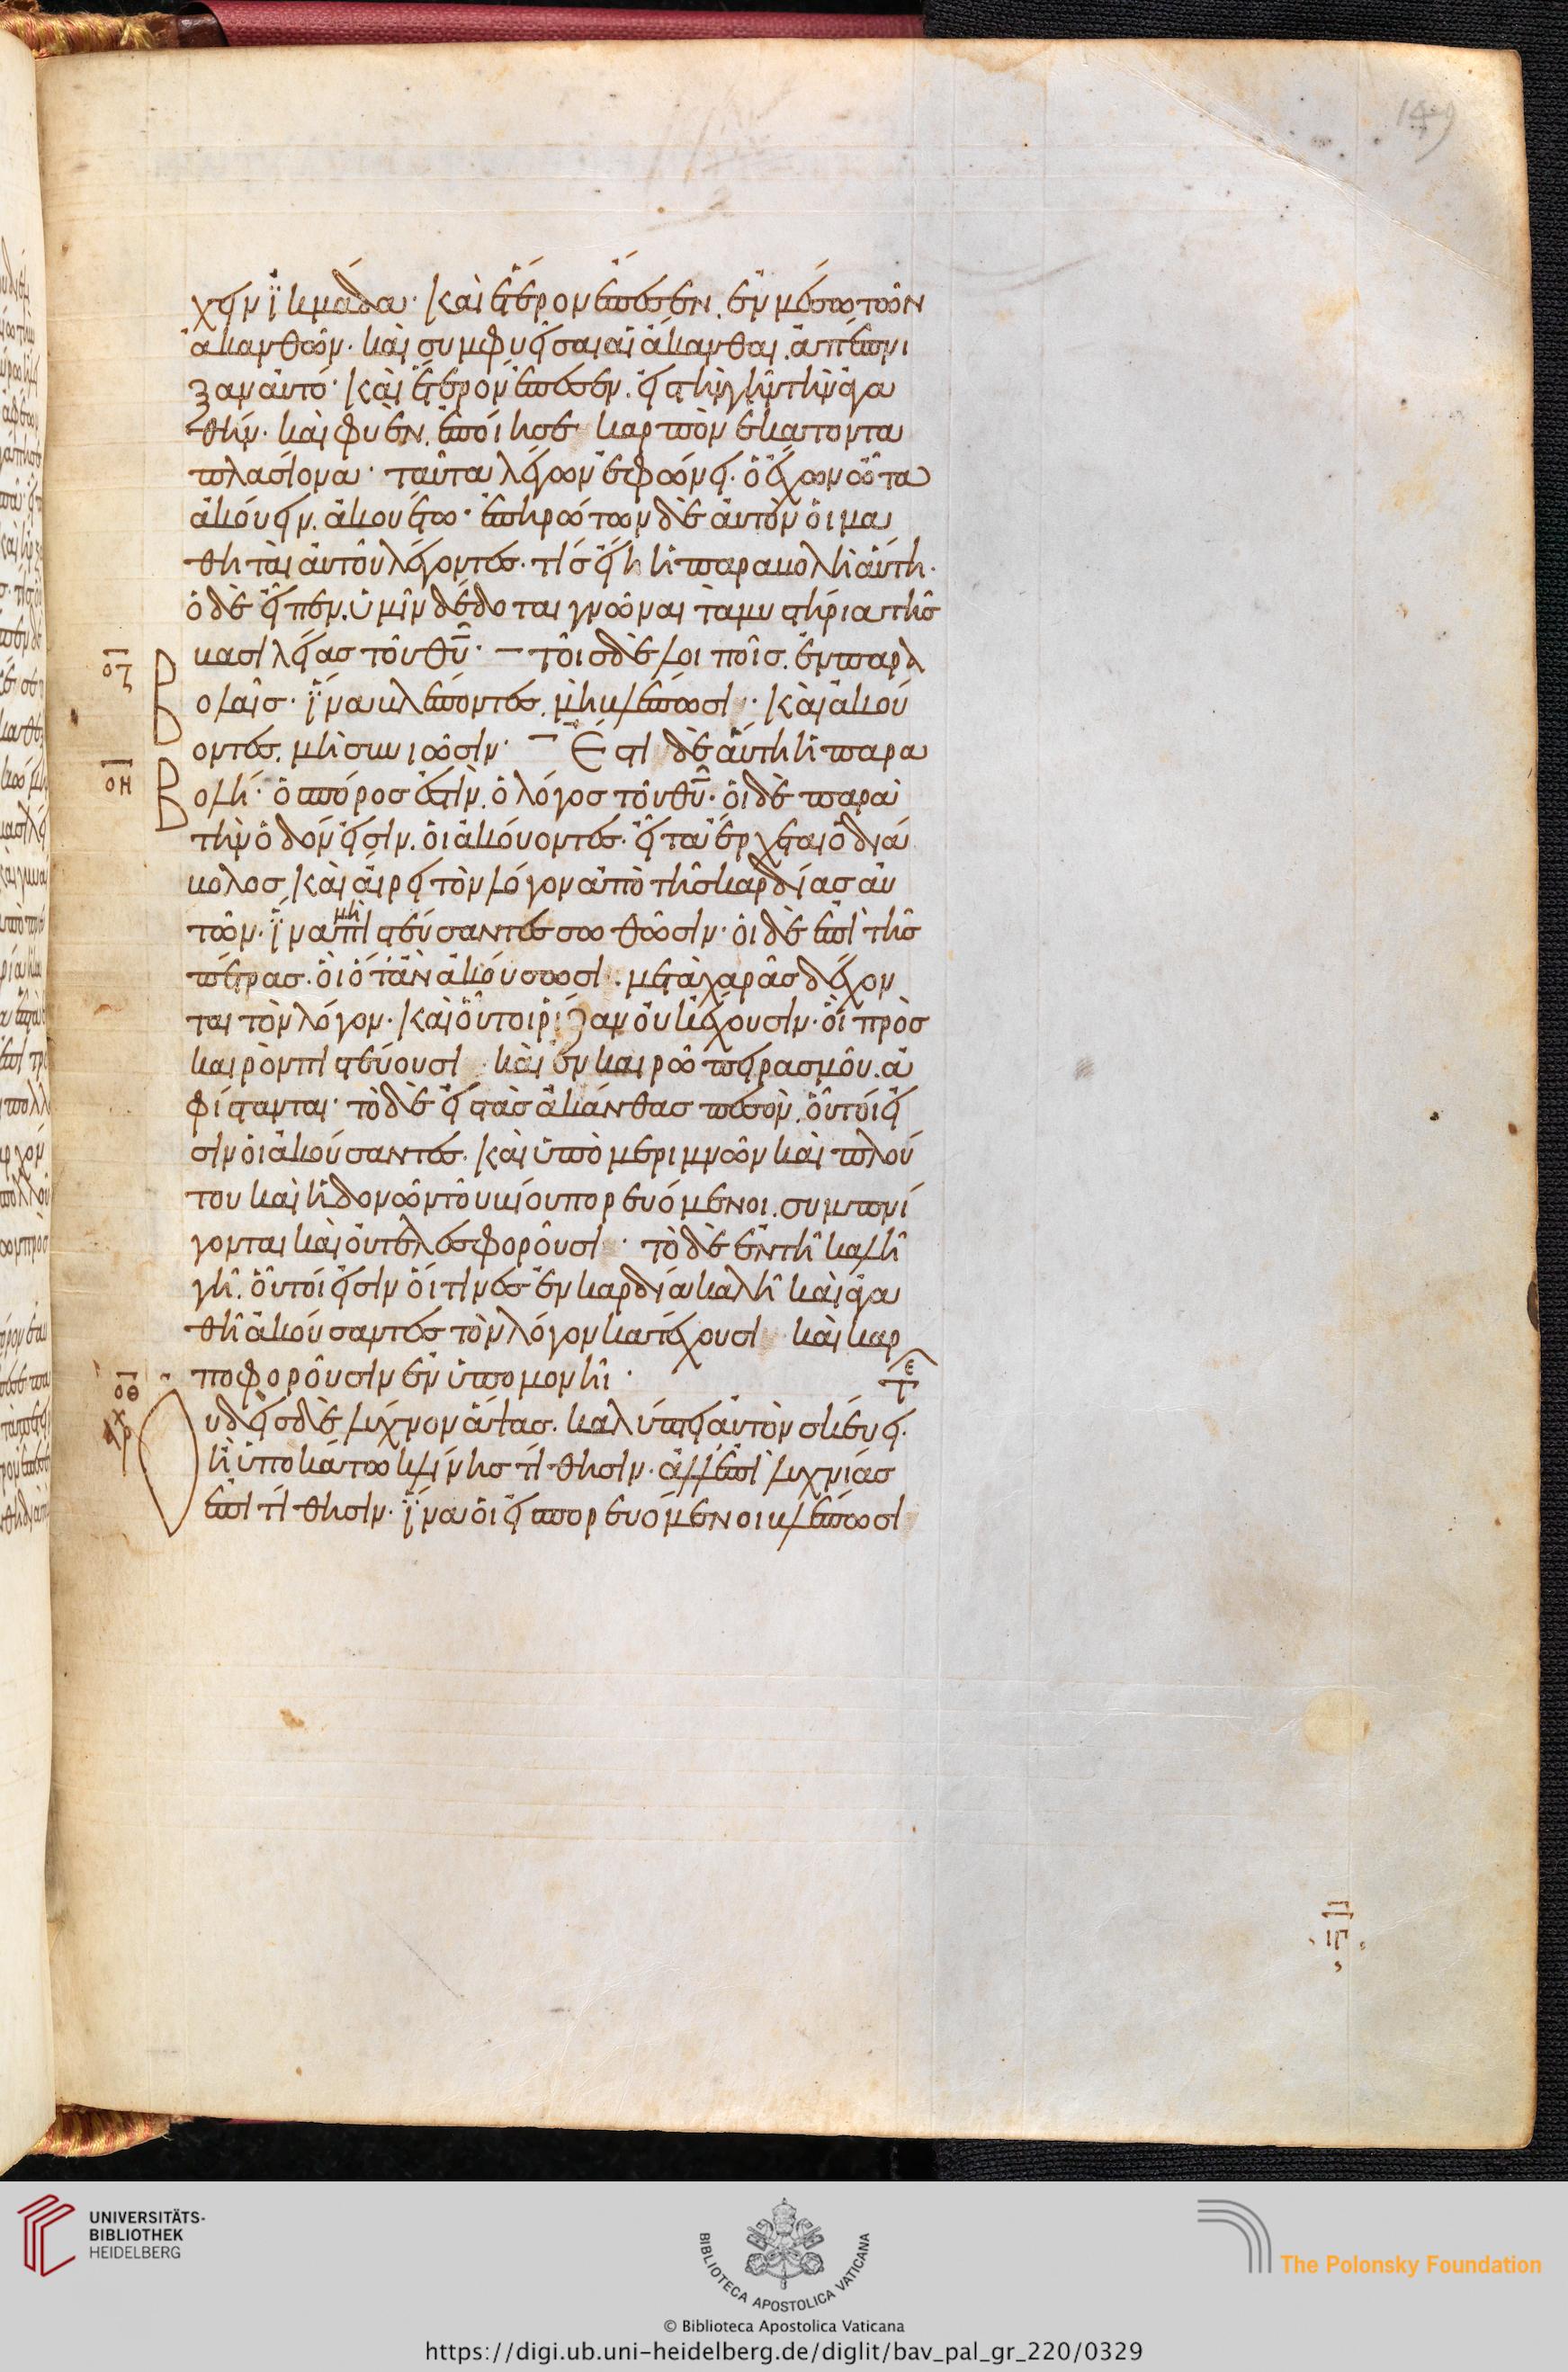 149
χειν ἰκμάδα· καὶ ἕτερον ἔπεσεν. ἐν μέσω τῶν
ἀκανθῶν· καὶ συμφυεῖσαι αἱ ἄκανθαι. ἀπέπνι
ξαν αὐτό· καὶ ἕτερον ἔπεσεν. εἰς τὴν γῆν τὴν ἀγα
θήν· καὶ φυὲν. ἐποίησε καρπὸν ἑκατοντα
πλασίονα· ταῦτα λέγων ἐφώνει. ὁ ἔχων ὦτα
ἀκούειν. ἀκουέτω· ἐπηρώτων δὲ αὐτὸν οἱ μα
θηταὶ αὐτοῦ λέγοντες. τίς εἴη ἡ παραβολὴ αὕτη.
ὁ δὲ εἶπεν. ὑμῖν δέδοται γνῶναι τὰ μυστήρια τῆς
βασιλείας τοῦ θυ· τοῖς δὲ λοιποῖς. ἐν παρα
οζ
βολαῖς· ἵνα βλέποντες. μὴ βλέπωσι· καὶ ἀκού
οντες. μὴ συνιῶσιν· Ἔστι δὲ αὕτη ἡ παρα
οη
βολή· ὁ σπόρος ἐστὶν. ὁ λόγος τοῦ θυ· οἱ δὲ παρὰ
τὴν ὁδόν εἰσιν. οἱ ἀκούοντες· εἶτα ἔρχεται ὁ διά
βολος, καὶ αἴρει τὸν λόγον ἀπὸ τῆς καρδίας αὐ
τῶν· ἵνα μὴ πιστεύσαντες σωθῶσιν· οἱ δὲ ἐπὶ τῆς
πέτρας. οἱ ὅταν ἀκούσωσι. μετὰ χαρᾶς δέχον
ται τὸν λόγον· καὶ οὗτοι ῥίζαν οὐκ ἔχουσιν· οἳ πρὸς
καιρὸν πιστεύουσι καὶ ἐν καιρῶ πειρασμοῦ. ἀ
φίστανται· τὸ δὲ εἰς τὰς ἀκάνθας πεσὸν. οὗτοί εἰ
σιν οἱ ἀκούσαντες. καὶ ὑπὸ μεριμνῶν καὶ πλού
του καὶ ἡδονῶν τοῦ βίου πορευόμενοι. συμπνί
γονται καὶ οὐ τελεσφοροῦσι· τὸ δὲ ἐν τῆ καλῆ
γῆ. οὗτοί εἰσιν οἵτινες ἐν καρδία καλῆ καὶ ἀγα
θῆ ἀκούσαντες τὸν λόγον κατέχουσι καὶ καρ
ποφοροῦσιν ἐν ὑπομονῆ·
οθ
Οὐδεὶς δὲ λύχνον ἅψας. καλύπτει αὐτὸν σκέυει.
ἢ ὑποκάτω κλίνης τίθησιν· ἀλλ' ἐπὶ λυχνίας
ἐπιτίθησιν· ἵνα οἱ εἰσπορευόμενοι βλέπωσι
UNIVERSITÄTS-
BIBLIOTHEK
HEIDELBERG
BIBLIOTECA APOSTOLICA VATICANA
The Polonsky Foundation
© Biblioteca Apostolica Vaticana
https://digi.ub.uni-heidelberg.de/diglit/bav_pal_gr_220/0329